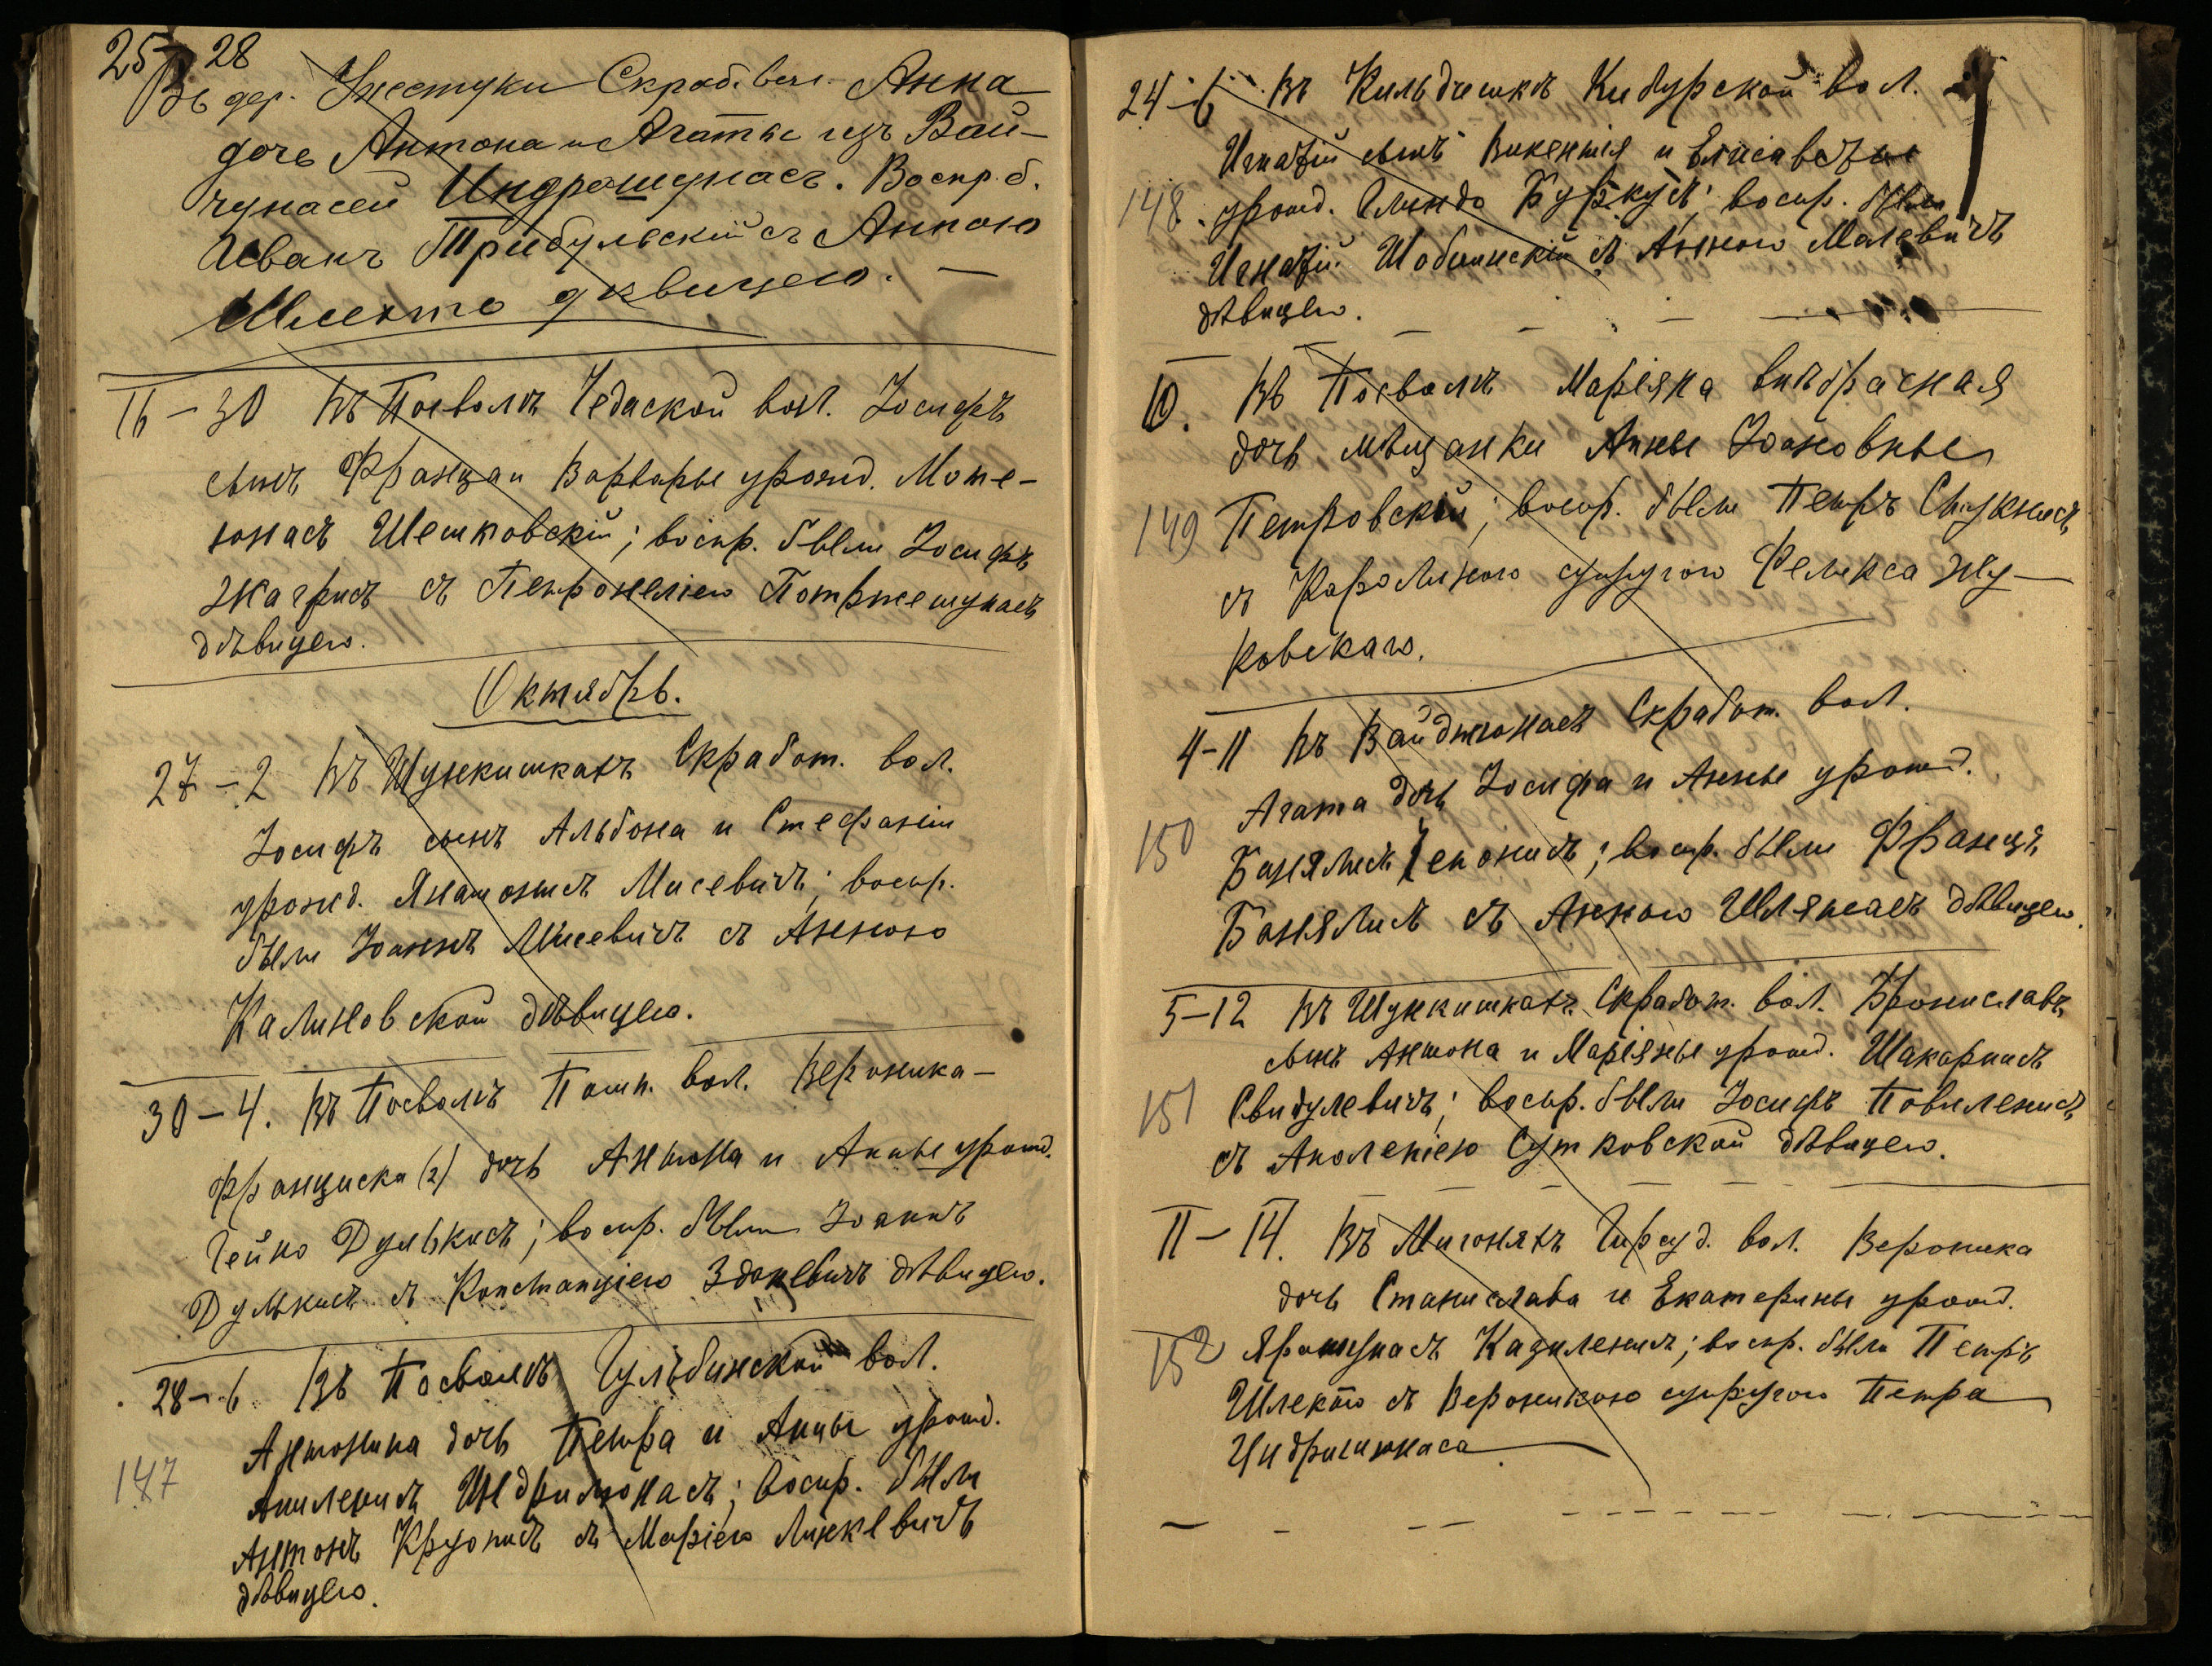 25 – 28
Въ дер. Ужестуки Скроб. вол. Анна
дочь Антона и Агаты изъ Вай-
чунасей Индрошунасъ. Воспр. б.
Иванъ Трибульскій съ Анною
Шлекто дѣвицею. —
16 – 30 Въ Посволѣ Чедаской вол. Іосифъ
сынъ Франца и Варвары урожд. Моте-
юнасъ Шешковскій; воспр. были Іосифъ
Жагрисъ съ Петронеліею Потржешунасъ
дѣвицею.
Октябрь.
27 – 2 Въ Шункишкахъ Скработ. вол.
Іосифъ сынъ Альбона и Стефаніи
урожд. Мисевичъ; воспр.
были Іоаннъ Мисевичъ съ Анною
Калиновской дѣвицею.
30 – 4. Въ Посволѣ Пошп. вол. Вероника –
Франциска (2) дочь Антона и Анны урожд.
Гейно Дулькисъ; воспр. были Іоаннъ
Дулькисъ съ Констанціею Зданевичъ дѣвицею.
28 – 6 Въ Посволѣ Гульбинской вол.
Антонина дочь Петра и Анны урожд.
147
Аниленисъ Индрилюнасъ; воспр. были
Антонъ Круписъ съ Маріею Линкевичъ
дѣвицею.
24 – 6 Въ Кильдишкѣ Кибурской вол.
Игнатій сынъ Викентія и Елисаветы
148. урожд. Глиндо Буркусъ; воспр. были
Игнатій Шоблинскій съ Анною Малевичъ
дѣвицею.
10. Въ Посволѣ Маріяна внѣбрачная
дочь мѣщанки Анны Іоановны
149 Петровской; воспр. были Петръ Стукнисъ
съ Каролиною супругою Феликса Жу-
ковскаго.
4–11 Въ Вайдтюнасъ Скработ. вол.
Агата дочь Іосифа и Анны урожд.
150
Банялисъ Чепонисъ; воспр. были Францъ
Банялисъ съ Анною Шляжасъ дѣвицею.
5–12 Въ Шункишкахъ Скработ. вол. Брониславъ
сынъ Антона и Маріяны урожд. Шакарнисъ
151 Свидулевичъ; воспр. были Іосифъ Повиленисъ
съ Аполеніею Сутковской дѣвицею.
11 – 14. Въ Мигоняхъ Гируд. вол. Вероника
дочь Станислава и Екатерины урожд.
152 Ярошунасъ Казиленисъ; воспр. были Петръ
Шлекто съ Вероникою супругою Петра
Индришюнаса